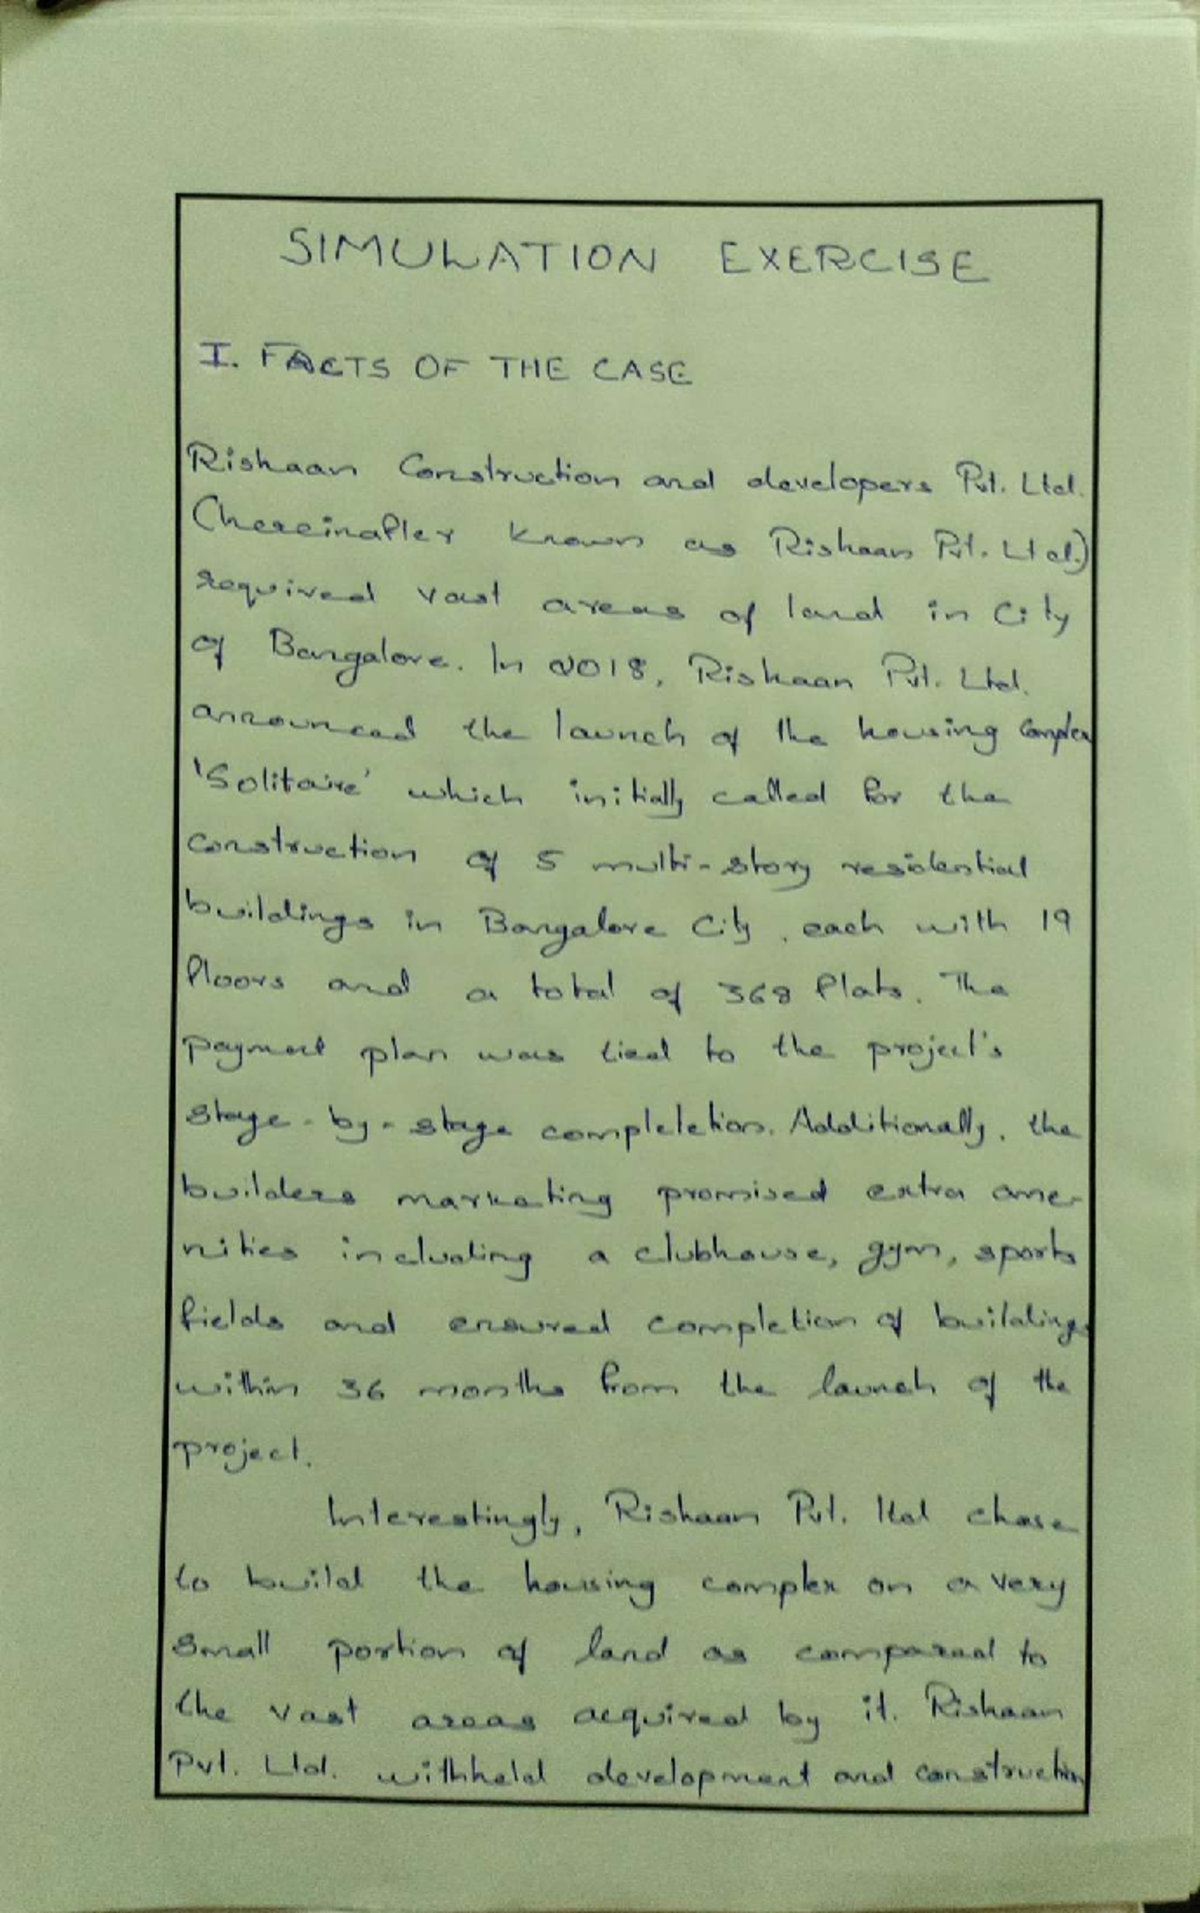 SIMULATION EXERCISE
I. FACTS OF THE CASE
Rishaan Construction and developers Pvt. Ltd.
(hereinafter known as Rishaan Pvt. Ltd.)
required vast areas of land in City
of Bangalore. In 2018, Rishaan Pvt. Ltd.
announced the launch of the housing Complex
'Solitaire' which initially called for the
construction of 5 multi-story residential
buildings in Bangalore City, each with 19
floors and a total of 368 flats. The
payment plan was tied to the project's
stage-by-stage completetion. Additionally, the
builders marketing promised extra ame-
nities including a clubhouse, gym, sports
fields and ensured completion of buildings
within 36 months from the launch of the
project.
Interestingly, Rishaan Pvt. ltd chose
to build the housing complex on a very
small portion of land as compared to
the vast areas acquired by it. Rishaan
Pvt. Ltd. withheld development and construction